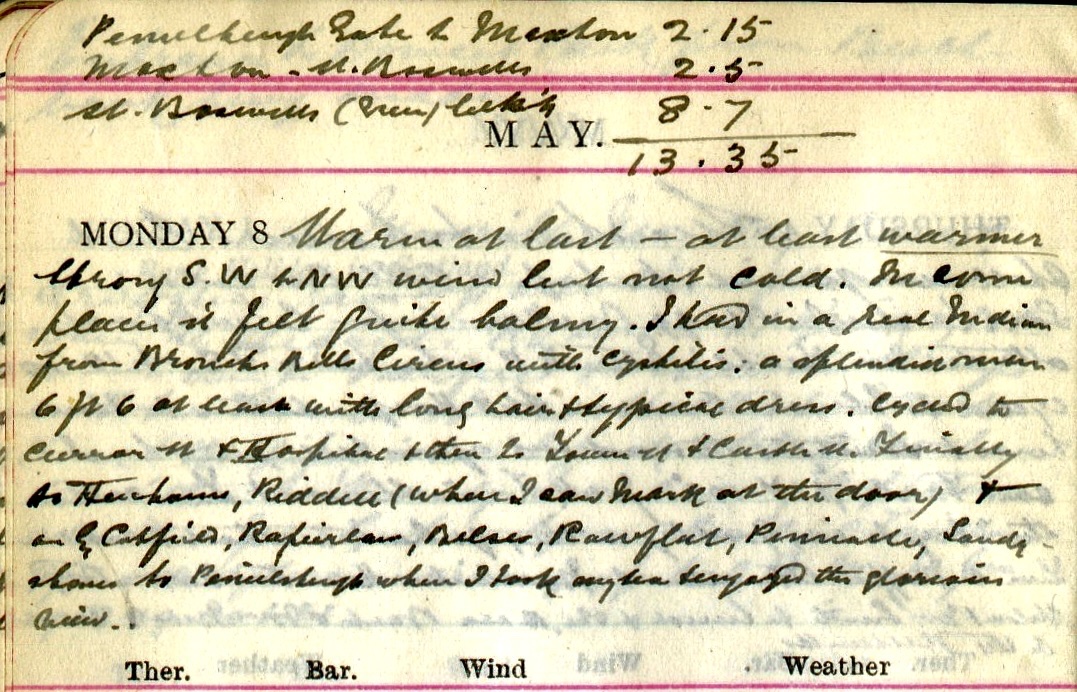 Penielheugh Gate to Maxton 2.15
Maxton - St. Boswells 2.5
St. Boswells (Green) 8.7
MAY.
13.35
MONDAY 8 Warm at last — at least warmer
Strong S.W to NW wind but not cold. In some
places it felt quite balmy. I had in a real Indian
from Bronko Bills Circus with cystitis: a splendid man
6 ft 6 at least with long hair & typical dress. Cycled to
St & Hospital & then to Tower St & Castle St. Finally
to Riddell (where I saw Mark at the door) &
on by Catfield, Rapierlaw, Belses, Rawflat, Pinnacle, Sandy-
to Penielheugh where I took my tea & enjoyed the glorious
view..
Ther. Bar. Wind Weather